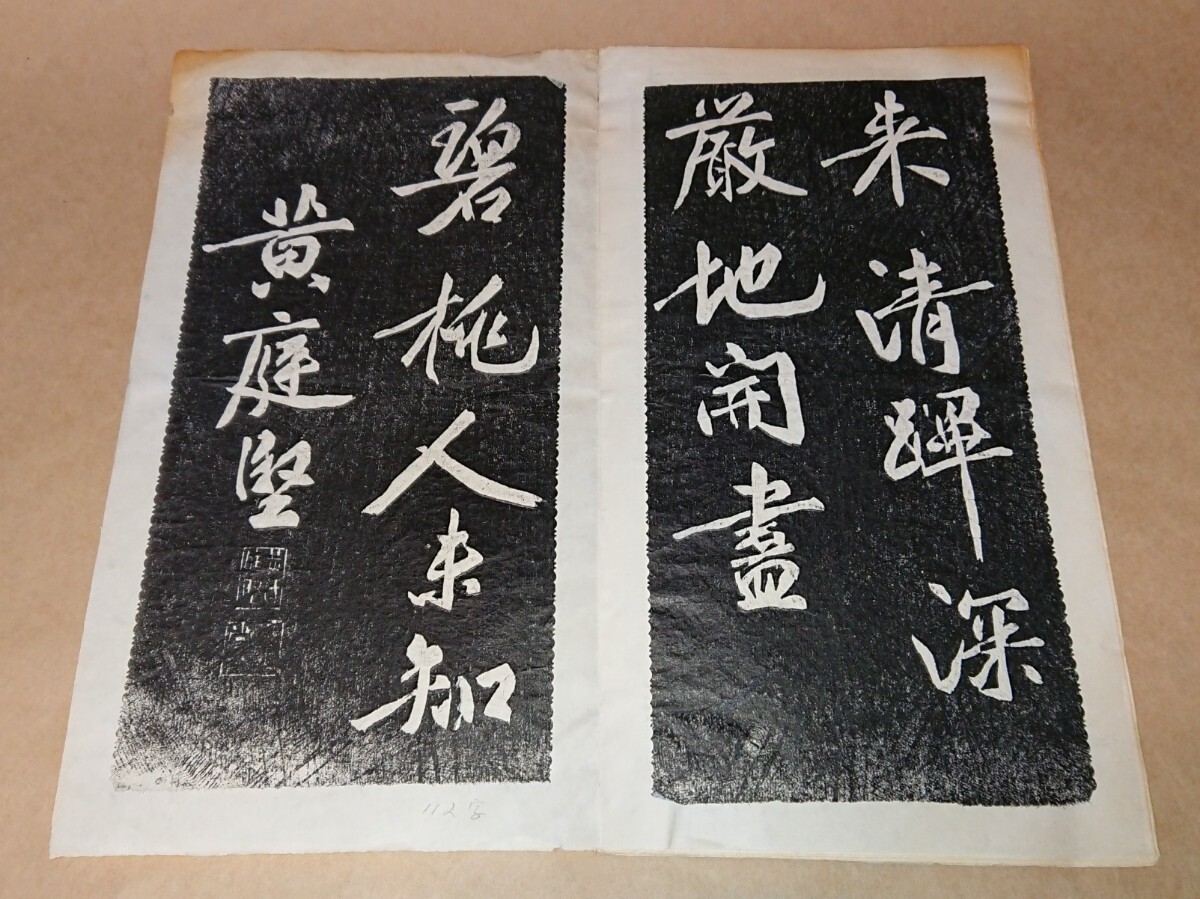 来清暉深
嚴地開盡
碧桃人未知
黄庭堅
112字